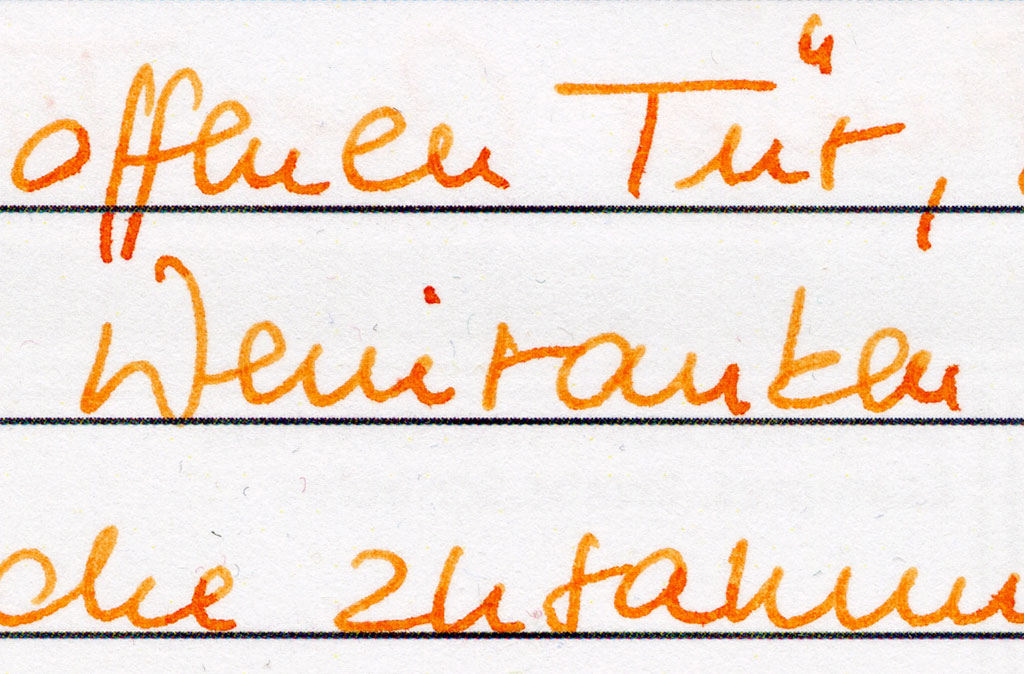 offenen Tür,
Weinranken
zusamm